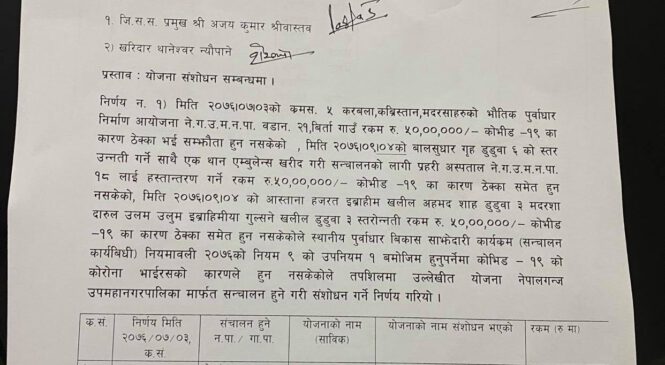 १. जि.स.स. प्रमुख श्री अजय कुमार श्रीवास्तव
२) खरिदार थानेश्वर न्यौपाने
प्रस्ताव : योजना संशोधन सम्बन्धमा ।
निर्णय न. १) मिति २०७६।०७।०३को कमस. ५ करबला,कब्रिस्तान,मदरसाहरुको भौतिक पुर्वाधार
निर्माण आयोजना ने.ग.उ.म.न.पा. वडान. २१,बिर्ता गाउँ रकम रु. ५०,००,०००/- कोभीड -१९ का
कारण ठेक्का भई सम्झौता हुन नसकेको , मिति २०७६।०९।०४को बालसुधार गृह डुडुवा ६ को स्तर
उन्नती गर्ने साथै एक थान एम्बुलेन्स खरीद गरी सन्चालनको लागी प्रहरी अस्पताल ने.ग.उ.म.न.पा.
१८ लाई हस्तान्तरण गर्ने रकम रु.५०,००,०००/- कोभीड -१९ का कारण ठेक्का समेत हुन
नसकेको, मिति २०७६।०९।०४ को आस्ताना हजरत इब्राहीम खलील अहमद शाह डुडुवा ३ मदरशा
दारुल उलम उलुम इब्राहिमीया गुल्सने खलील डुडुवा ३ स्तरोन्नती रकम रु. ५०,००,०००/- कोभीड
-१९ का कारण ठेक्का समेत हुन नसकेकोले स्थानीय पुर्वाधार बिकास साझेदारी कार्यकम (सन्चालन
कार्यबिधी) नियमावली २०७६को नियम ९ को उपनियम १ बमोजिम हुनुपर्नेमा कोभिड - १९ को
कोरोना भाईरसको कारणले हुन नसकेकोले तपशिलमा उल्लेखीत योजना नेपालगन्ज
उपमहानगरपालिका मार्फत सन्चालन हुने गरी संशोधन गर्ने निर्णय गरियो ।
क.सं. निर्णय मिति २०७६/०७/०३, क.सं. संचालन हुने न.पा./ गा.पा. योजनाको नाम (साविक) योजनाको नाम संशोधन भएको रकम (रु मा)